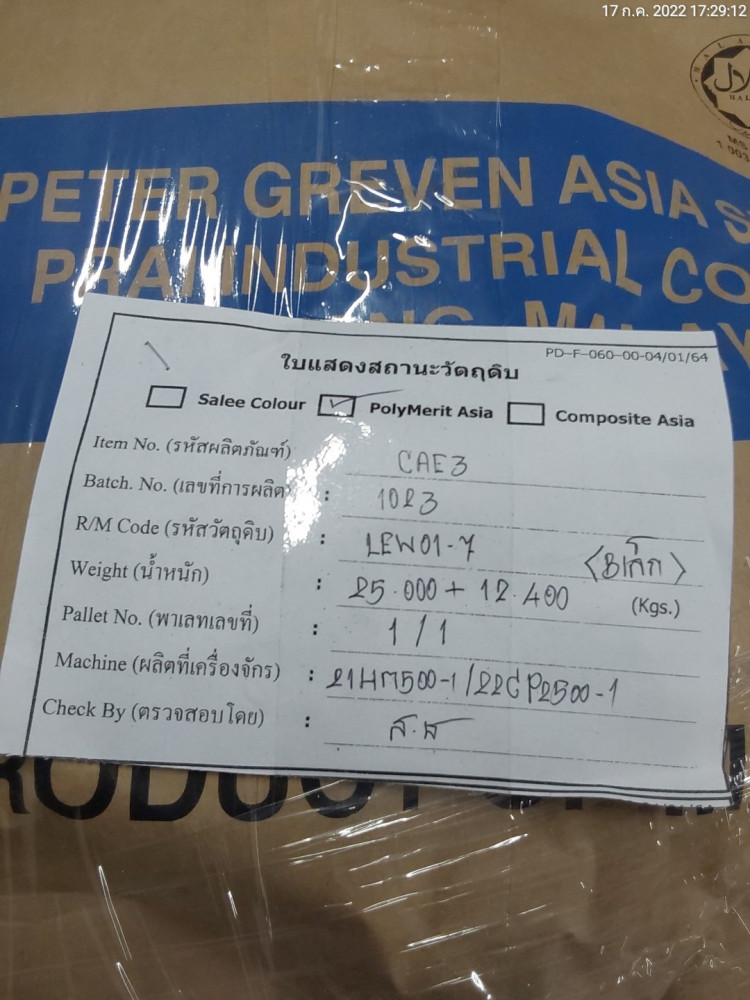 17 ก.ค. 2022 17:29:12
HALAL
MS
PETER GREVEN ASIA S
PRAI INDUSTRIAL CO
PD-F-060-00-04/01/64
ใบแสดงสถานะวัตถุดิบ
Salee Colour PolyMerit Asia Composite Asia
Item No. (รหัสผลิตภัณฑ์) CAE3
Batch. No. (เลขที่การผลิต) : 1023
R/M Code (รหัสวัตถุดิบ) : LEW01-7
Weight (น้ำหนัก) : 25.000 + 12.400 (Kgs.)
Pallet No. (พาเลทเลขที่) : 1/1
Machine (ผลิตที่เครื่องจักร) : 21HM500-1/22CP2500-1
Check By (ตรวจสอบโดย) : ส.ส